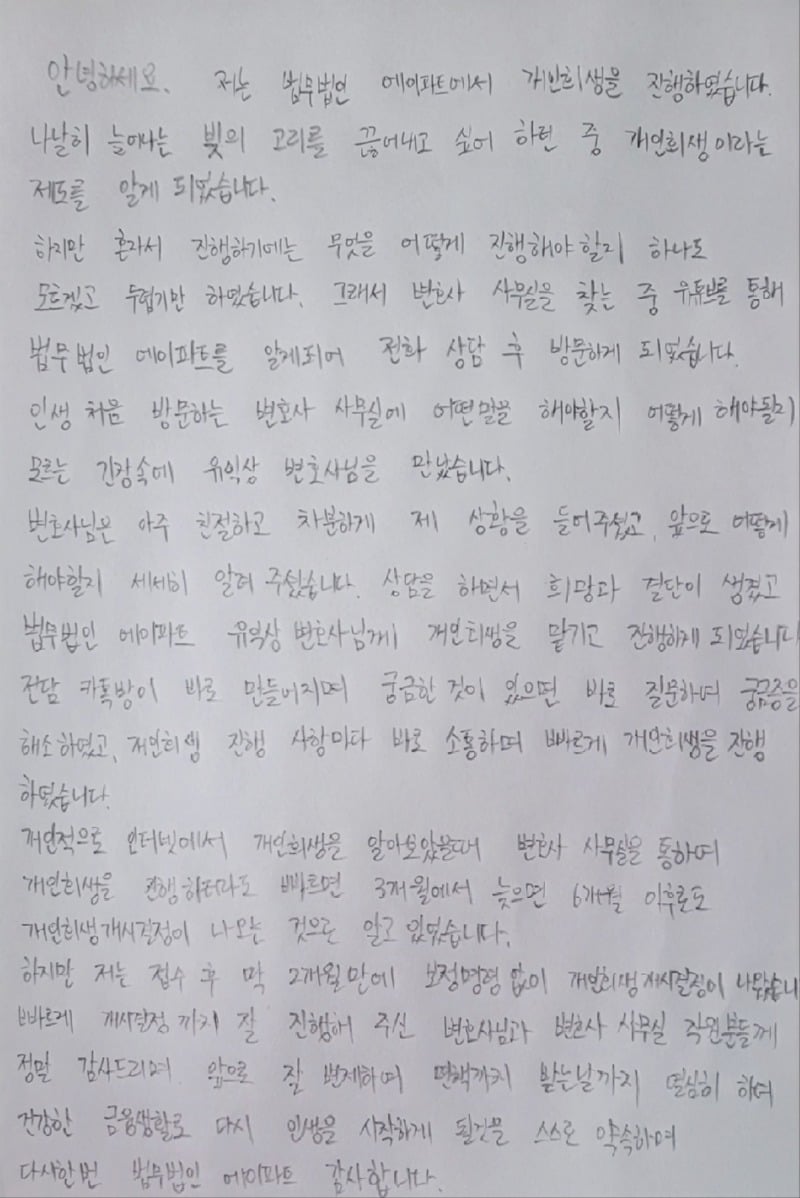 안녕하세요. 저는 법무법인 에이파트에서 개인회생을 진행하였습니다.
나날히 늘어나는 빚의 고리를 끊어내고 싶어 하던 중 개인회생이라는
제도를 알게 되었습니다.
하지만 혼자서 진행하기에는 무엇을 어떻게 진행해야 할지 하나도
모르겠고 두렵기만 하였습니다. 그래서 변호사 사무실을 찾는 중 유튜브를 통해
법무법인 에이파트를 알게되어 전화 상담 후 방문하게 되었습니다.
인생 처음 방문하는 변호사 사무실에 어떤말을 해야할지 어떻게 해야될지
모르는 긴장속에 유익상 변호사님을 만났습니다.
변호사님은 아주 친절하고 차분하게 제 상황을 들어주셨고, 앞으로 어떻게
해야할지 세세히 알려 주셨습니다. 상담을 하면서 희망과 결단이 생겼고
법무법인 에이파트 유익상 변호사님께 개인회생을 맡기고 진행하게 되었습니다
전담 카톡방이 바로 만들어지며 궁금한 것이 있으면 바로 질문하며 궁금증을
해소하였고, 개인회생 진행 사항마다 바로 소통하며 빠르게 개인회생을 진행
하였습니다.
개인적으로 인터넷에서 개인회생을 알아보았을때 변호사 사무실을 통하여
개인회생을 진행하더라도 빠르면 3개월에서 늦으면 6개월 이후로도
개인회생개시결정이 나오는 것으로 알고 있었습니다.
하지만 저는 접수 후 막 2개월만에 보정명령 없이 개인회생개시결정이 나왔습니
빠르게 개시결정 까지 잘 진행해 주신 변호사님과 변호사 사무실 직원분들께
정말 감사드리며 앞으로 잘 변제하여 면책까지 받는날까지 열심히 하여
건강한 금융생활로 다시 인생을 시작하게 될것을 스스로 약속하며
다시한번 법무법인 에이파트 감사합니다.